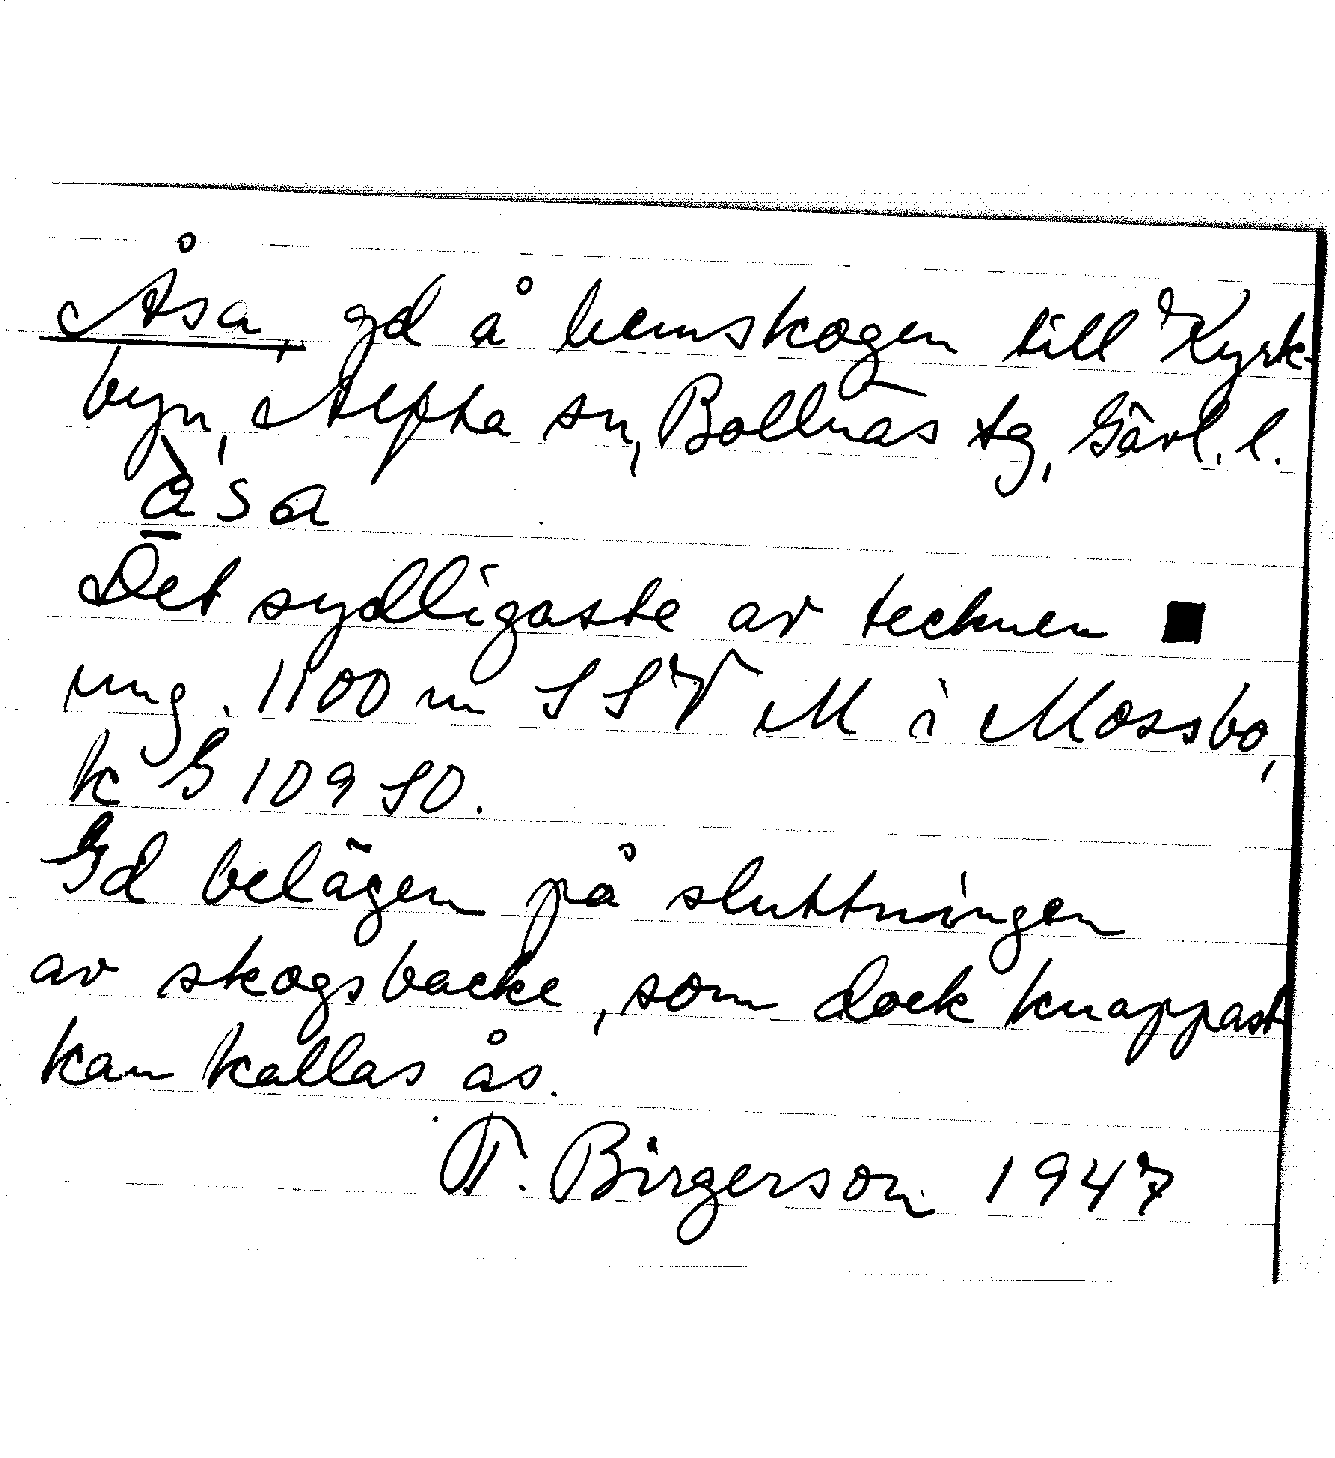 Åsa, gd å hemskogen till Kyrk-
byn, Alfta sn, Bollnäs tg, Gävl. l.
åsa
Det sydligaste av tecknen ■
ung. 1100 m SSV M i Mossbo,
k G 109 SO.
Gd belägen på sluttningen
av skogsbacke, som dock knappast
kan kallas ås.
T. Birgerson 1947